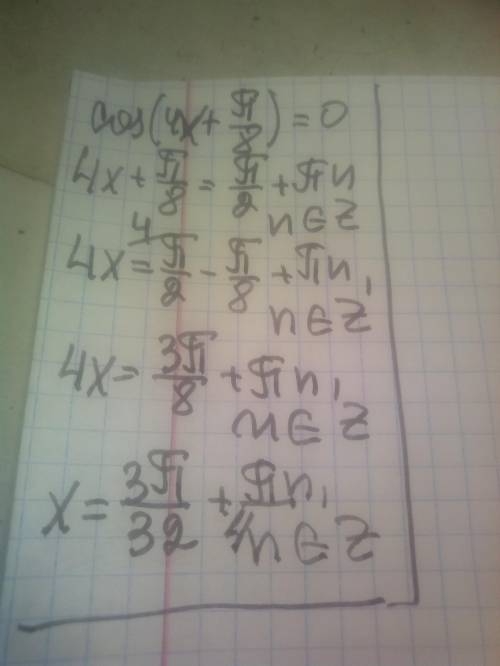 cos(4x + π/8) = 0
4x + π/8 = π/2 + πn
n ∈ Z
4x = π/2 - π/8 + πn,
4
n ∈ Z
4x = 3π/8 + πn,
n ∈ Z
x = 3π/32 + πn/4,
n ∈ Z